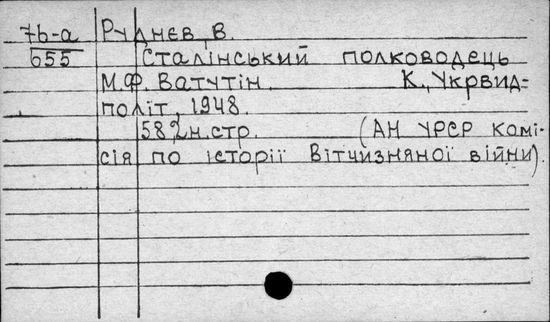 7b-a Руднєв, В.
655 Сталінський полководець
М.Ф. Ватутін. К., Укрвид-
політ, 1948.
58,2н.стр. (АН УРСР комі-
сія по історії Вітчизняної війни).